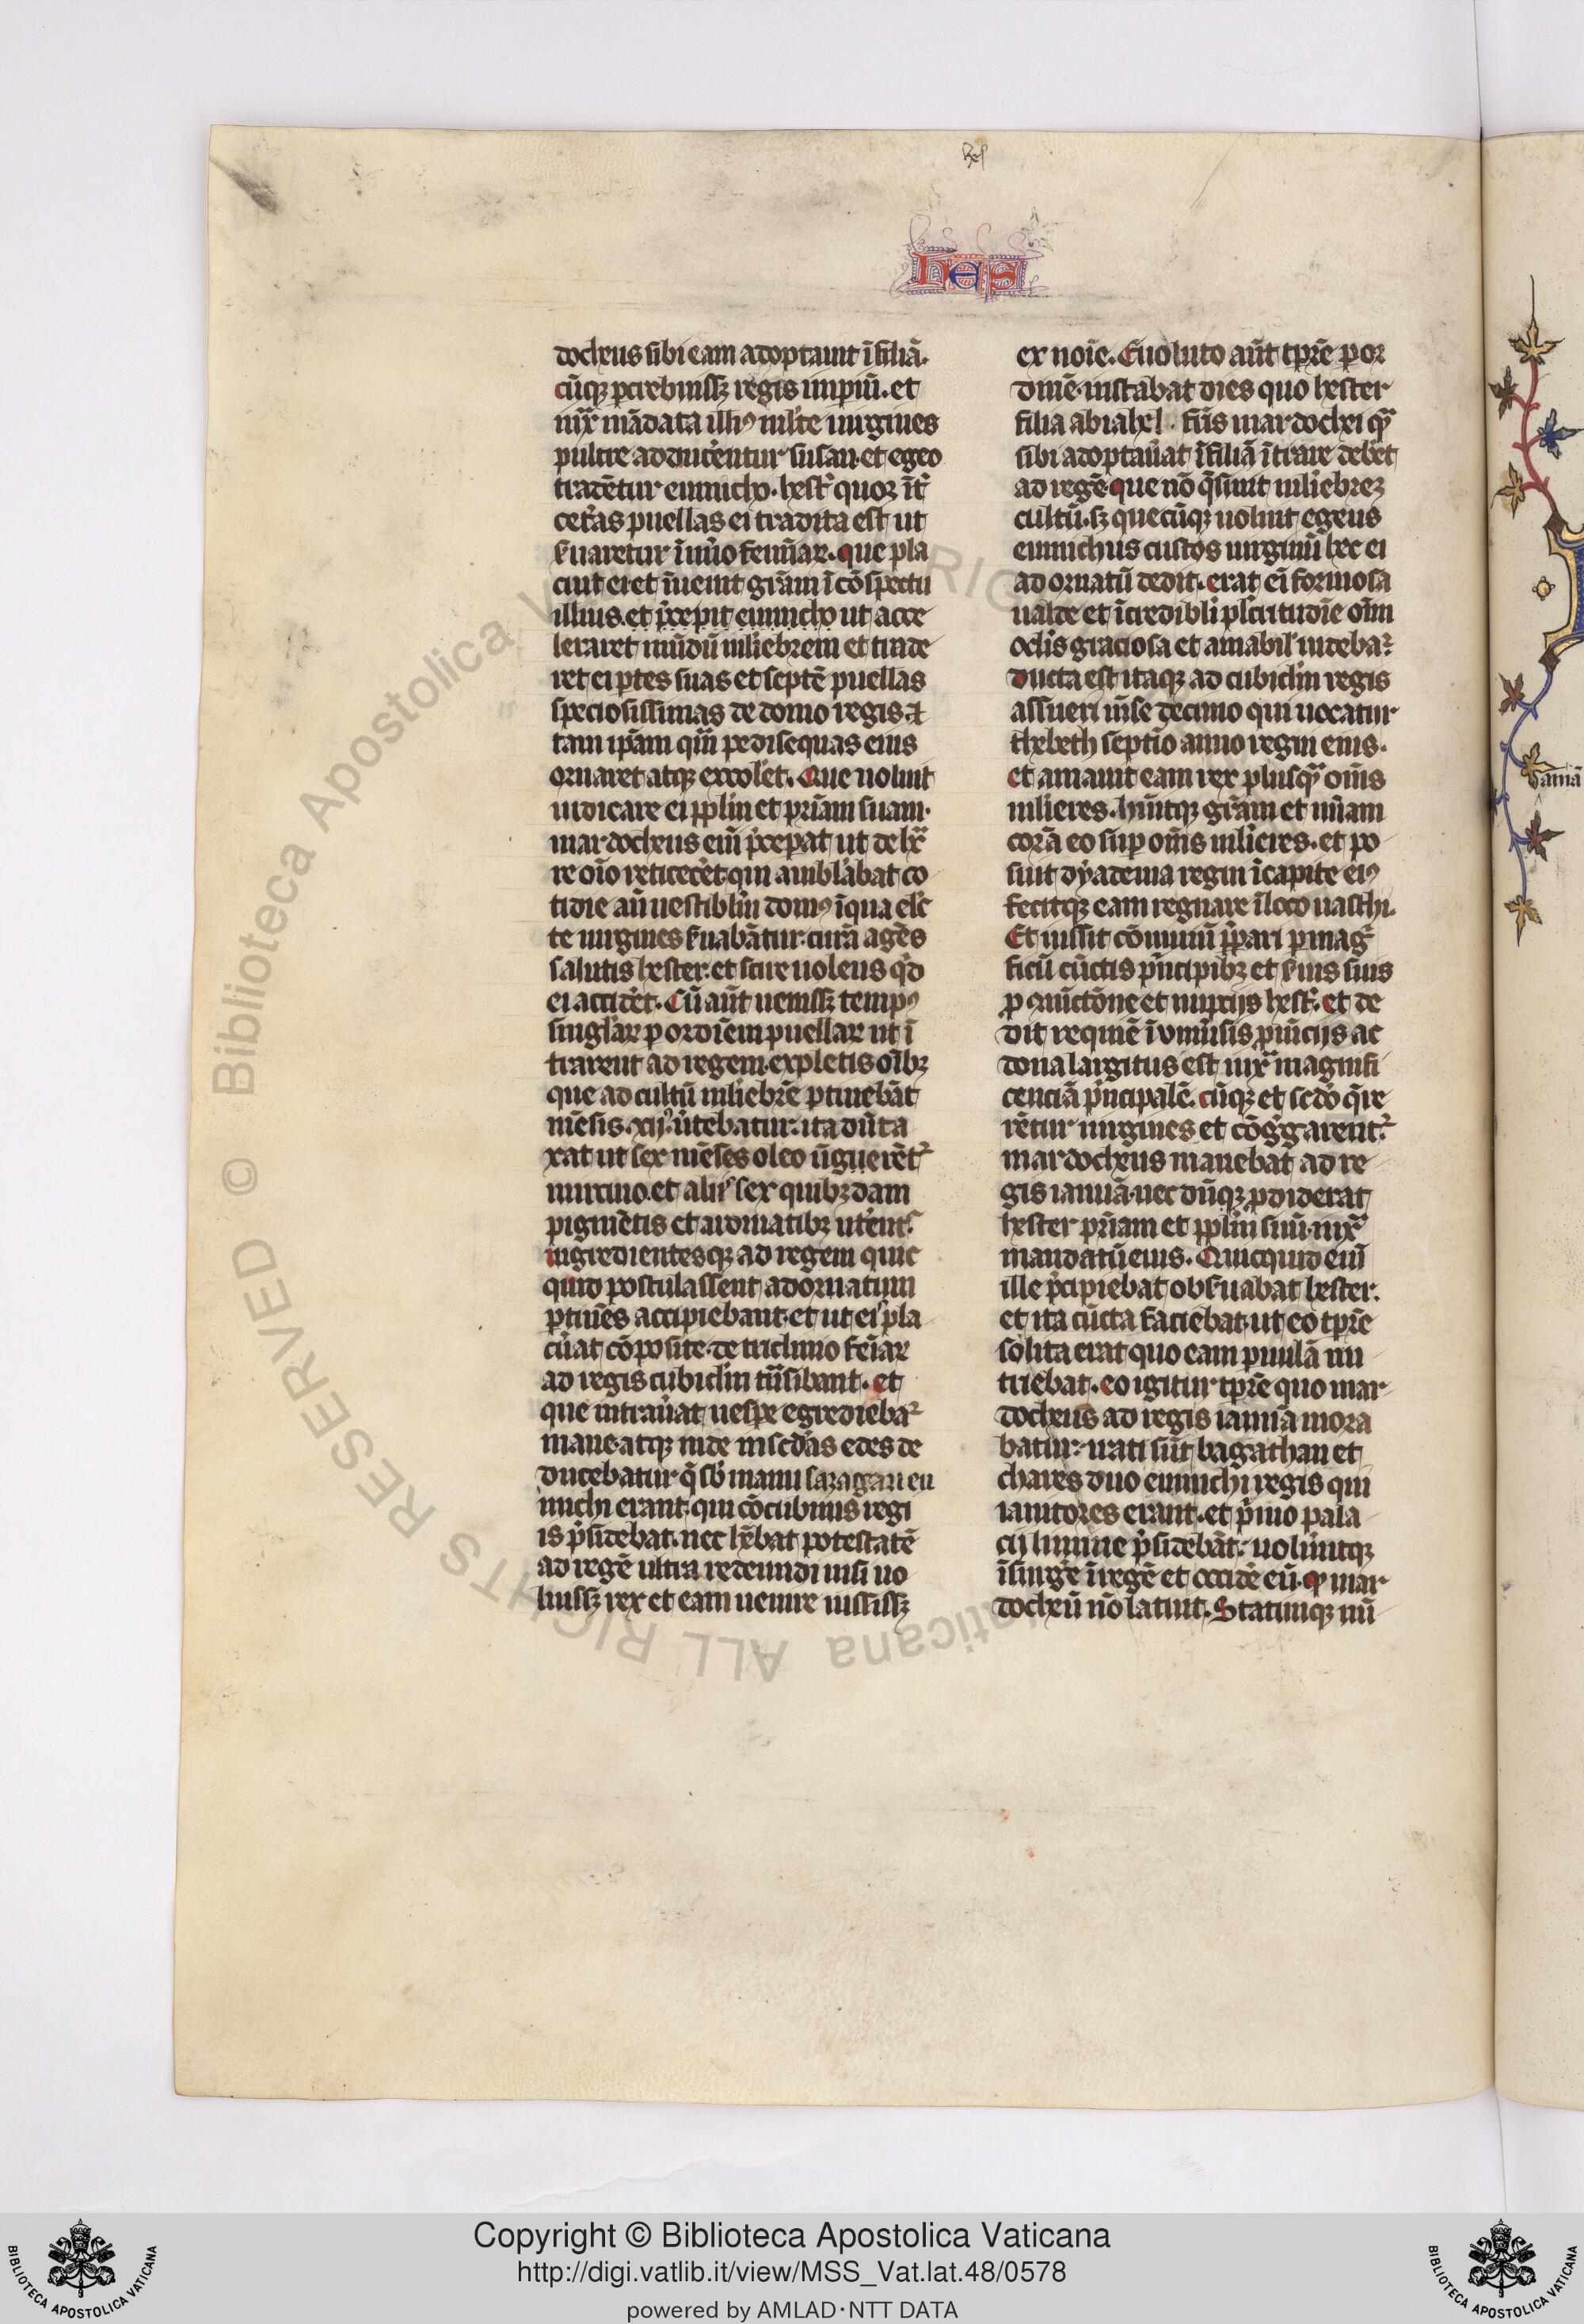 hes
hes
docheus sibi eam adoptauit ĩ filiã.
cũqꝫ pcrebuissꝫ regis impiũ. et
iux̄ mãdata illiꝰ multe uirgines
pulcre adducerentur susan. et egeo
tradētur eunucho. hesť quoꝫ ĩť
ceťas puellas ei tradita est ut
suaretur ĩ nũo feminaꝝ. que pla
cuit ei et ĩuenit grãm ĩ cõspectu
illius. et p̃cepit eunucho ut acce
leraret mũdũ mĺiebrem et trade
ret ei ptes suas et septē puellas
speciosissimas de domo regis ⁊
tam ipãm qm̃ pedisequas eius
ornaret atqꝫ excolet. Que noluit
indicare ei pplm et priãm suam.
mardocheus eni p̃cepat ut de hr̃
re oĩo reticeret. qui ambĺabat co
tidie añ uestiblm domꝰ ĩ qua elc̃
te uirgines suabãtur. curã agēs
salutis hester. et scire uolens qd̃
ei accidet. Cũ aũt uenissꝫ tempꝰ
singĺaꝝ p ordiēm puellaꝝ ut ĩ
trarent ad regem. expletis oĩbꝫ
que ad cultũ mĺiebrē ptinebãt
mēsis xij. ũtebatur. ita dũta
xat ut sex mēses oleo ũguerēť
mircino. et alijs sex quibꝫdam
pigmētis et aromatibꝫ utent̃.
ingredientesqꝫ ad regem quic
quid postulassent ad ornatum
ptinēs accipiebant. et ut eis pla
cũat cõposite. de triclinio feĩaꝝ
ad regis cubiclm tñsibant. et
que intrauat uespe egrediebať
mane. atqꝫ inde in scdãs edes de
ducebatur q̃ sb manu saragazi eu
nuchi erant. qui cõcubinis regi
is p̃sidebat. nec hēbat potestatē
ad regē ultra redeundi nisi uo
luissꝫ rex et eam uenire iussissꝫ
ex noĩe. Euoluto aũt tp̃re p or
dinē. instabat dies quo hester
filia abiahel. fr̃is mardochei q̃
sibi adoptauat ĩ filiã ĩtrare debet
ad regē. que nõ q̃siuit mĺiebreꝫ
cultũ. sꝫ quecũqꝫ uoluit egeus
eunuchus custos uirginũ hec ei
ad ornatũ dedit. erat ei formosa
ualde et ĩcredibli plcritudĩe oĩm
ocĺis graciosa et amabiĺ uidebať.
ducta est itaqꝫ ad cubiclm regis
assueri mse decimo qui uocatur
thebeth septĩo anno regni eius.
et amauit eam rex plusq̃ om̃s
mĺieres. hũitqꝫ grãm et mĩam
corã eo sup om̃s mĺieres. et po
suit dyadema regni ĩ capite eiꝰ
fecitqꝫ eam regnare ĩ loco uasthi.
Et iussit cõuiuiũ p̃pari pmag̃
ficũ cũctis p̃ncipibꝫ et suis suis
p ꝯiũctõne et nupcijs hesť. et de
dit requiē ĩ vniũsis puĩcijs ac
dona largitus est iux̄ magnifi
cenciã p̃ncipalē. cũqꝫ et scdõ q̃re
rētur uirgines et cõggarenť.
mardocheus manebat ad re
gis ianuã. nec dũqꝫ pdiderat
hester pr̃iam et pplm suũ. iux̄
mandatũ eius. Quicquid eni
ille p̃cipiebat obsuabat hester.
et ita cũcta faciebat. ut eo tp̃re
solita erat quo eam puulã nu
triebat. eo igitur tp̃re quo mar
docheus ad regis ianuã mora
batur. irati sũt bagathan et
thares duo eunuchi regis qui
ianitores erant. et p̃mo pala
cij limine p̃sidebãt. uolũitqꝫ
ĩsurge ĩ regē et occidē eũ. qꝫ mar
docheũ nõ latuit. Statimqꝫ nũ
Copyright © Biblioteca Apostolica Vaticana
http://digi.vatlib.it/view/MSS_Vat.lat.48/0578
powered by AMLAD·NTT DATA
BIBLIOTECA APOSTOLICA VATICANA
BIBLIOTECA APOSTOLICA VATICANA
© Biblioteca Apostolica Vaticana ALL RIGHTS RESERVED